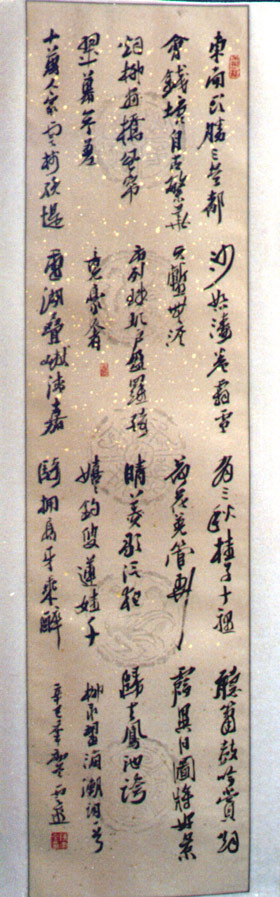 東南形勝三吳都
會錢塘自古繁華
烟柳畫橋風帘
翠幕參差
十萬人家雲樹繞堤
沙怒濤卷霜雪
天塹無涯
市列珠璣戶盈羅綺
竞豪奢
重湖疊巘清嘉
有三秋桂子十里
荷花羌管弄
晴菱歌泛夜
嬉嬉釣叟蓮娃千
騎拥高牙乘醉
聽簫鼓吟賞烟
霞異日圖將好景
歸去鳳池誇
柳永望海潮詞
辛巳年